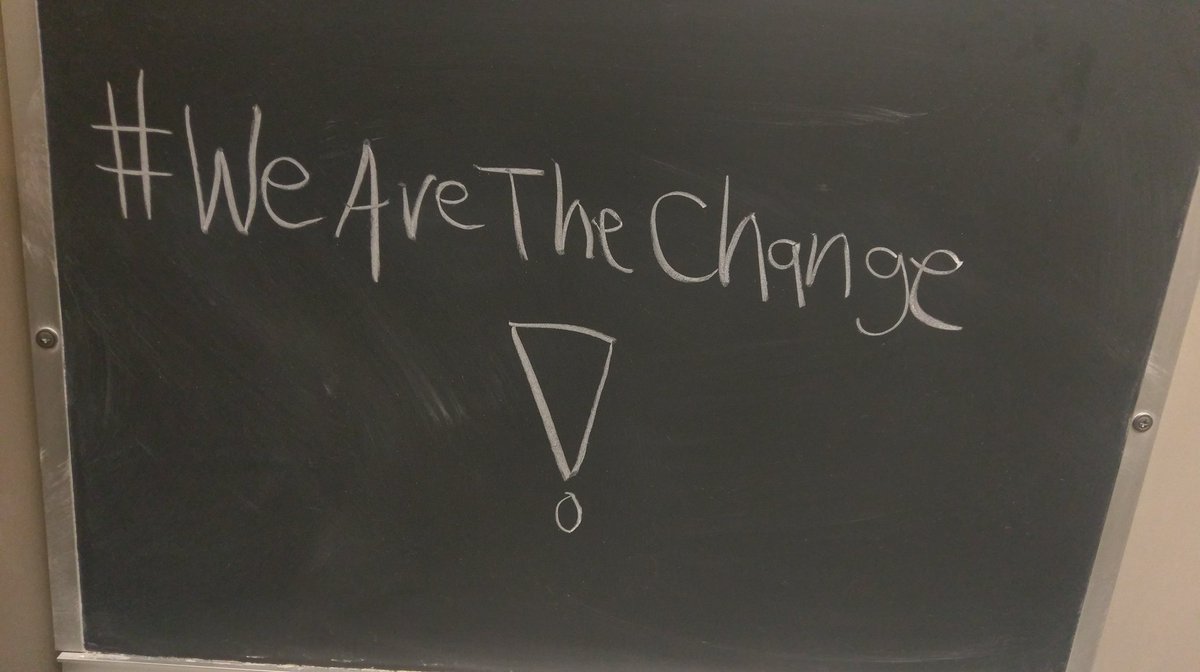 #WeAreTheChange
!